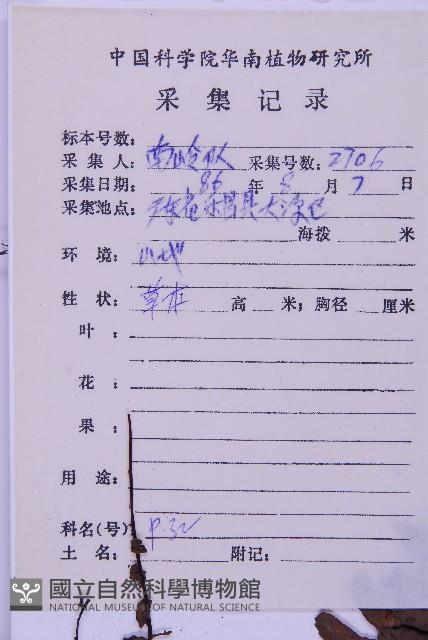 中国科学院华南植物研究所
采集记录
标本号数：
采集人：南岭队 采集号数：2706
采集日期：86年8月7日
采集地点：广东省乐昌县大源
海拨 米
环境：山坡
性状：草本 高 米；胸径 厘米
叶：
花：
果：
用途：
科名(号)：P.32
土名： 附记：
國立自然科學博物館
NATIONAL MUSEUM OF NATURAL SCIENCE